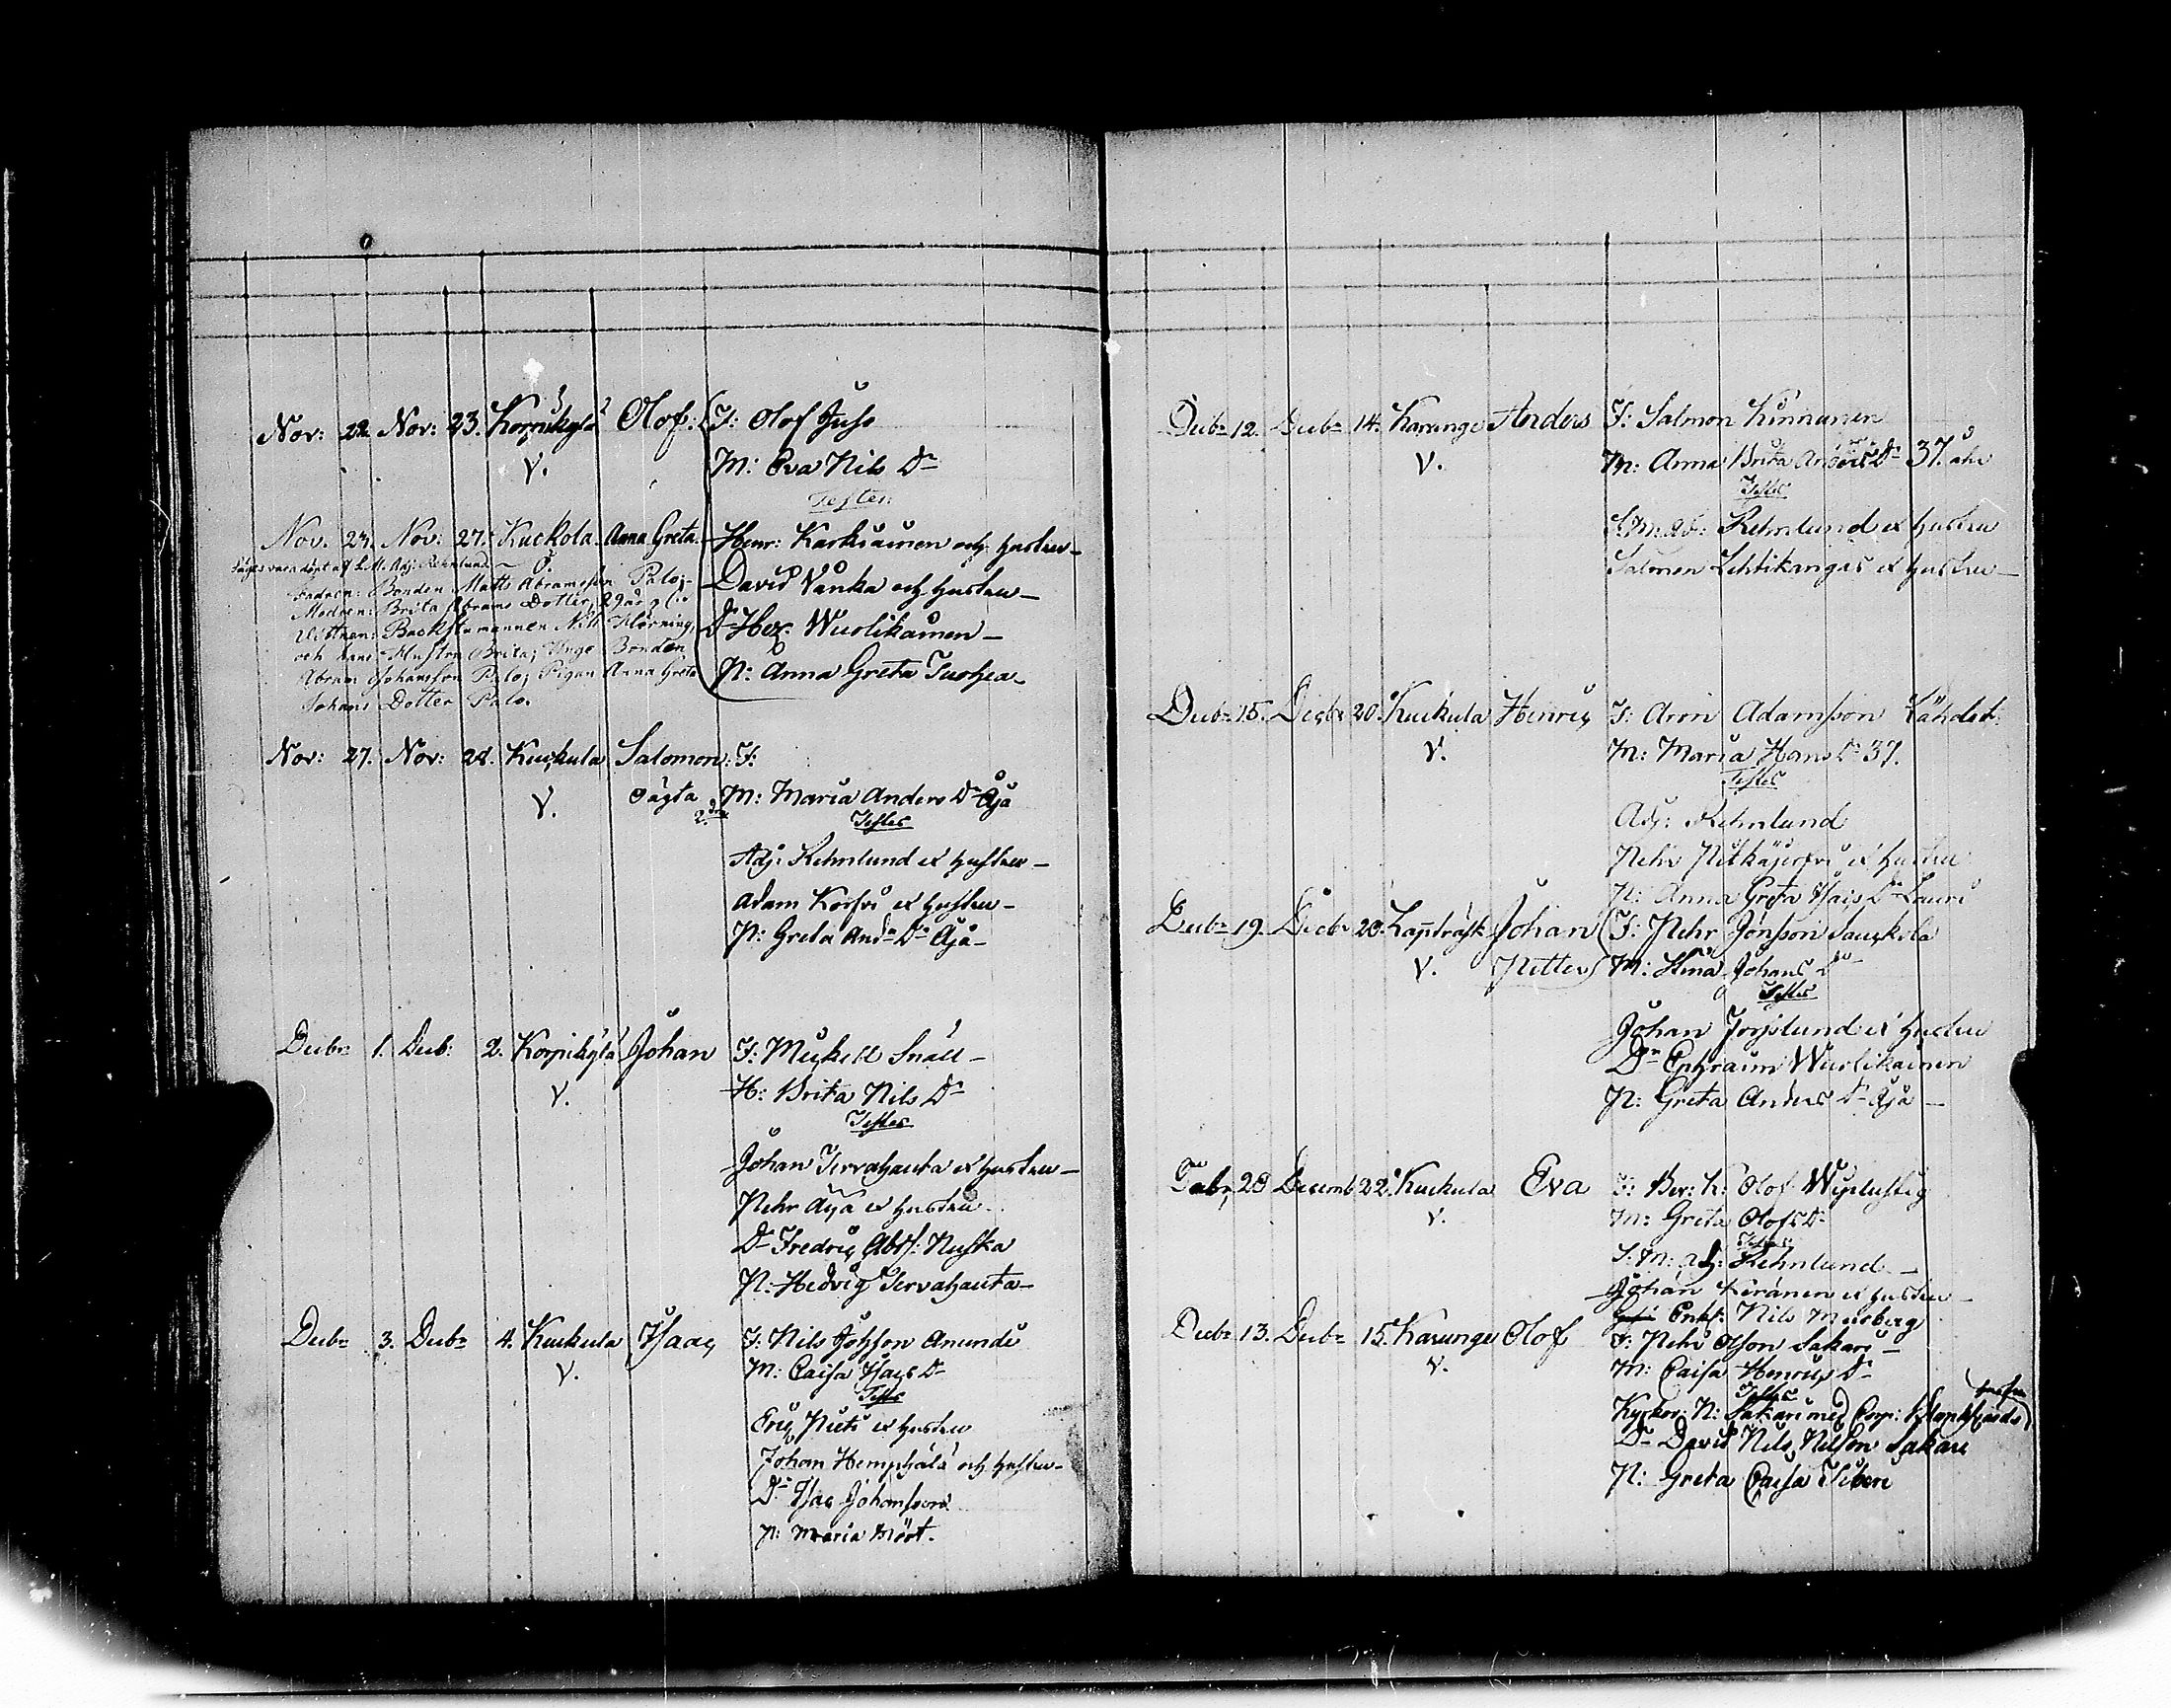 Nov: 22. Nov: 23. Korpikylä Olof: F: Olof Juho
V. M: Eva Nils Dr
Testes
Henr: Karkiainen och hustru
David Vånka och hustru
Dr Hex. Wuolikainen
P: Anna Greta Tuohea
Nov. 23. Nov: 27. Kuckola Anna Greta.
Säges vara döpt af S. M. Adj. Rehnlund
Fadren: Bonden Matts Abramsson Palo;
Modren: Brita Abrams Dotter, 29 år
Vittnen: Backstumannen Nils Hörning,
och hans Hustru Brita; Unge Bonden
Abram Johansson Palo; Pigan Anna Greta
Johans Dotter Palo.
Nov: 27. Nov: 28. Kuckula Salomon: F:
V. Oägta 2dra M: Maria Anders Dr Äjä
Testes
Adj: Rehnlund et hustru
Adam Korfvi et hustru
P: Greta Andrs Dr Äjä
Decbr 1. Decb: 2. Korpikylä Johan F: Mickell Snäll
V. H: Brita Nils Dr
Testes
Johan Tervahauta et hustru
Pehr Äjä et hustru
Dr Fredric Abrs: Ruska
P: Hedvig Tervahauta
Decbr 3. Decbr 4. Kuckula Isaac F: Nils Johsson Anundi
V. M: Caisa Isacs Dr
Testes
Eric Puti et hustru
Johan Hemphälä och hustru
Dr Isac Johansson
P: Maria Mört.
Decbr 12. Decbr 14. Karunge Anders F: Salmon Kinnunen
V. M: Anna Brita Anders Dr 37. åhr
Testes
S. M. Ad: Rehnlund et hustru
Salmon Lehtikangas et hustru
Decbr 15. Decbr 20. Kuckula Henric F: Arvi Adamsson Lähdet:
V. M: Maria Hans Dr 37.
Testes
Adj: Rehnlund
Pehr Pitkäjerfvi et hustru
P: Anna Greta Isacs Dr Lauri
Decbr 19. Decbr 20. Lappträsk Johan F: Pehr Jönsson Lauckola
V. Petter M: Stina Johans Dr
Testes
Johan Forslund et hustru
Dr Ephraim Wuolikainen
P: Greta Anders Dr Äjä
20 Decemb 22. Kuckula Eva F: Olof Wiplustig
V. M: Greta Olofs Dr
Testes
S. M. adj: Rehnlund
Johan Keränen et hustru
Enkl: Nils Mosberg
Decbr 13. Decbr 15. Karunge Olof F: Pehr Olson Sakari
V. M: Caisa Henrics Dr
Testes
Kyrkov: N: Sakari med Corp: hustru
Dr David Nils Nilsson Sakari
P: Greta Caisa